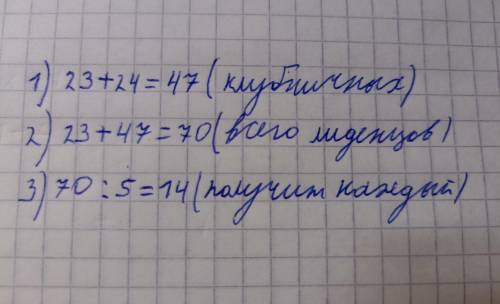 1) 23+24=47 (клубничных)
2) 23+47=70 (всего леденцов)
3) 70:5=14 (получит каждый)